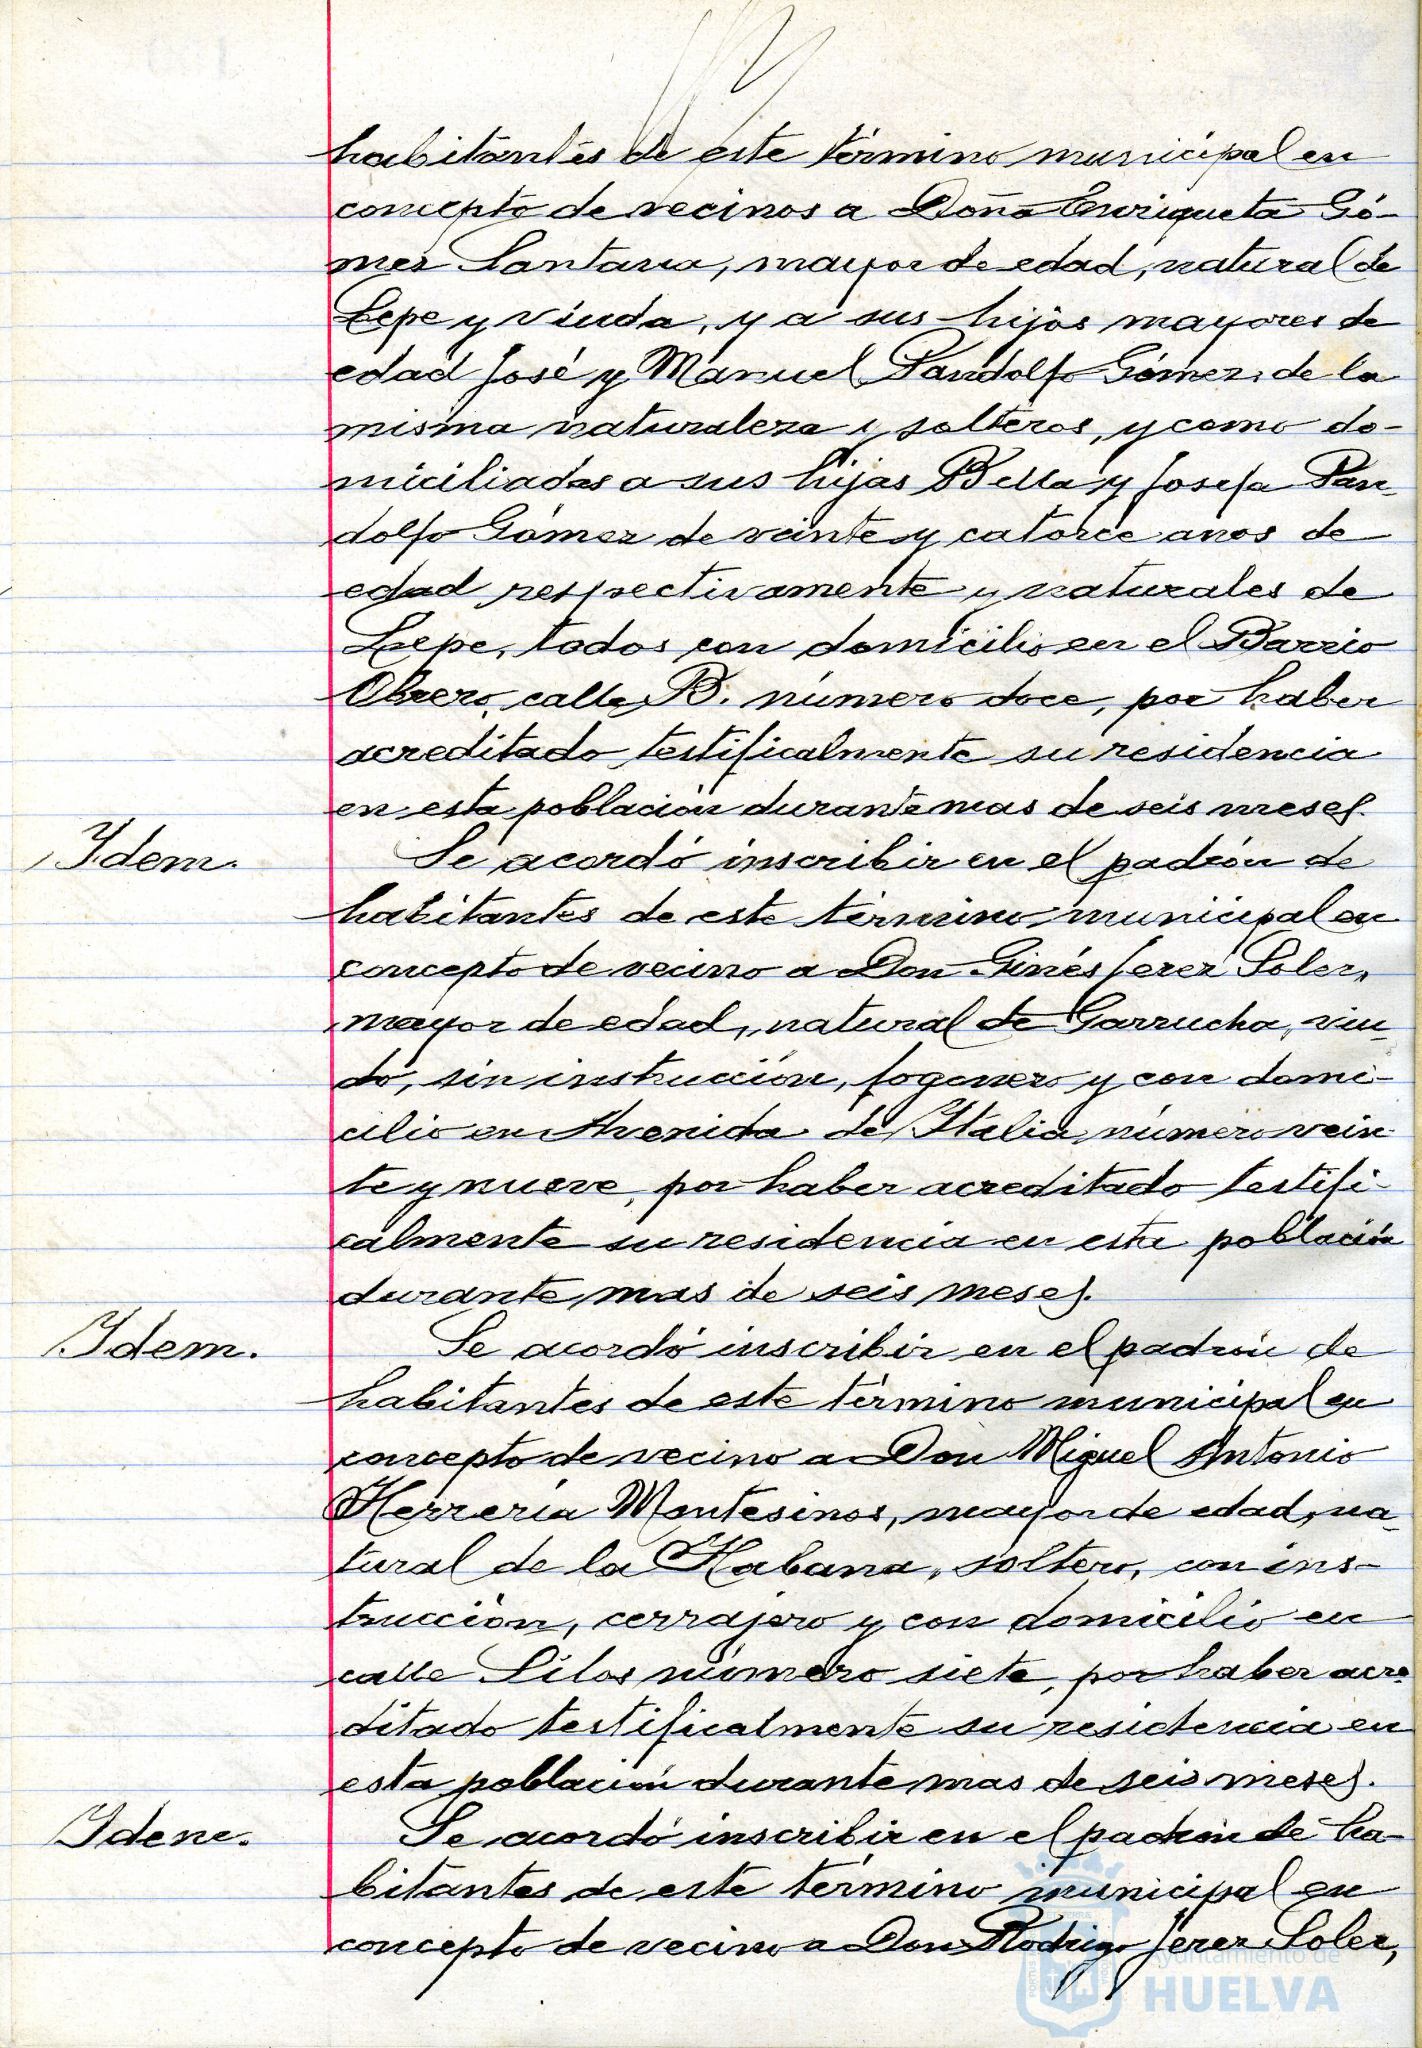 habitantes de este término municipal en
concepto de vecinos a Doña Enriqueta Gó-
mez Santana, mayor de edad, natural de
Lepe y viuda, y a sus hijos mayores de
edad José y Manuel Pandolfo Gómez, de la
misma naturaleza y solteros, y como do-
miciliadas a sus hijas Bella y Josefa Pan-
dolfo Gómez de veinte y catorce anos de
edad respectivamente y naturales de
Lepe, todos con domicilio en el Barrio
Obrero, calle B. número doce, por haber
acreditado testificalmente su residencia
en esta población durante mas de seis meses.
Idem. Se acordó inscribir en el padrón de
habitantes de este término municipal en
concepto de vecino a Don Ginés Jerez Soler,
mayor de edad, natural de Garrucha, viu-
do, sin instrucción, fogonero y con domi-
cilio en Avenida de Italia, número vein-
te y nueve, por haber acreditado testifi-
calmente su residencia en esta población
durante mas de seis meses.
Idem. Se acordó inscribir en el padrón de
habitantes de este término municipal en
concepto de vecino a Don Miguel Antonio
Herrería Montesinos, mayor de edad, na-
tural de la Habana, soltero, con ins-
trucción, cerrajero y con domicilio en
calle Silos número siete, por haber acre-
ditado testificalmente su residencia en
esta población durante mas de seis meses.
Idem. Se acordó inscribir en el padrón de ha-
bitantes de este término municipal en
concepto de vecino a Don Rodrigo Jerez Soler,
Ayuntamiento de
HUELVA